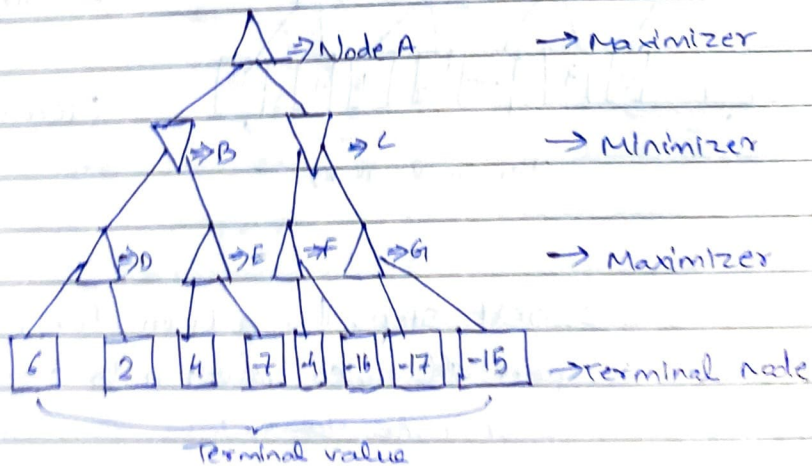 ⇒ Node A → Maximizer
⇒ B ⇒ C → Minimizer
⇒ D ⇒ E ⇒ F ⇒ G → Maximizer
6 2 4 -7 -4 -16 -17 -15 → Terminal node
Terminal value